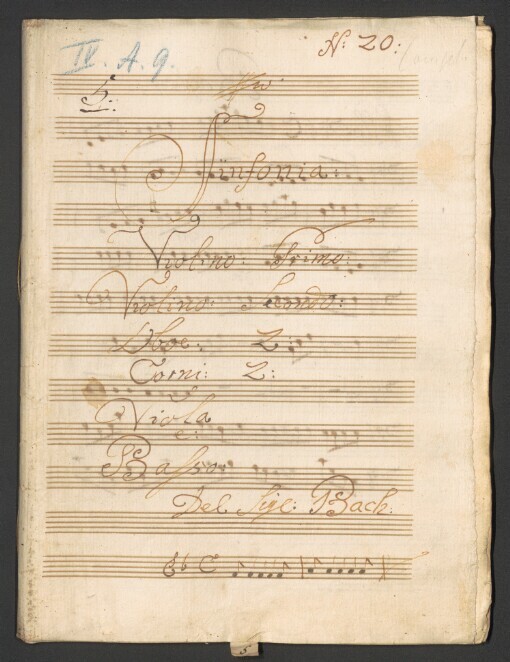 N: 20:
IV. A. 9.
5.
Sinfonia:
Violino: Primo:
Violino: Secondo:
Oboe: 2:
Corni: 2:
Viola
e:
Basso
Del Sigl: Bach: